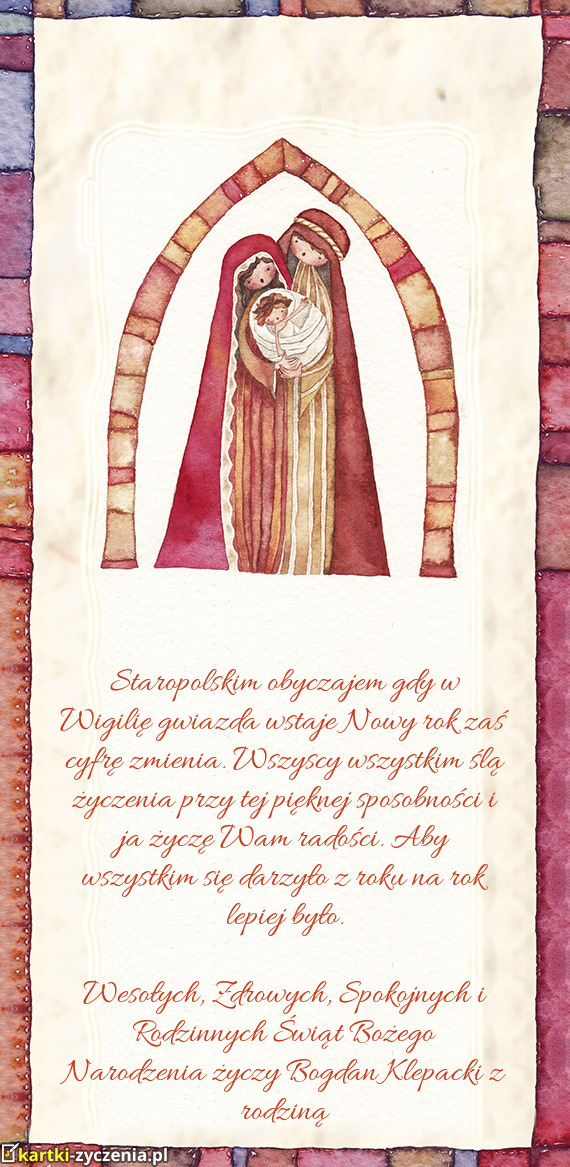 Staropolskim obyczajem gdy w
Wigilię gwiazda wstaje Nowy rok zaś
cyfrę zmienia. Wszyscy wszystkim ślą
życzenia przy tej pięknej sposobności i
ja życzę Wam radości. Aby
wszystkim się darzyło z roku na rok
lepiej było.

Wesołych, Zdrowych, Spokojnych i
Rodzinnych Świąt Bożego
Narodzenia życzy Bogdan Klepacki z
rodziną
kartki-zyczenia.pl